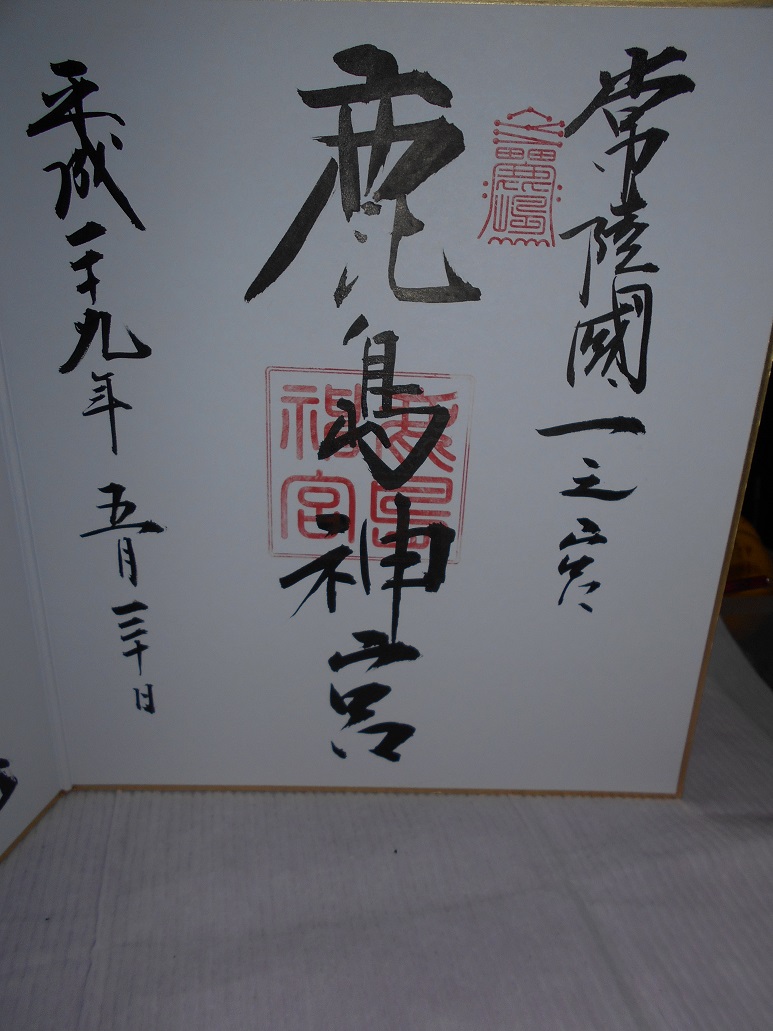 常陸國一之宮
鹿島神宮
鹿島
神宮
平成二十九年 五月三十日